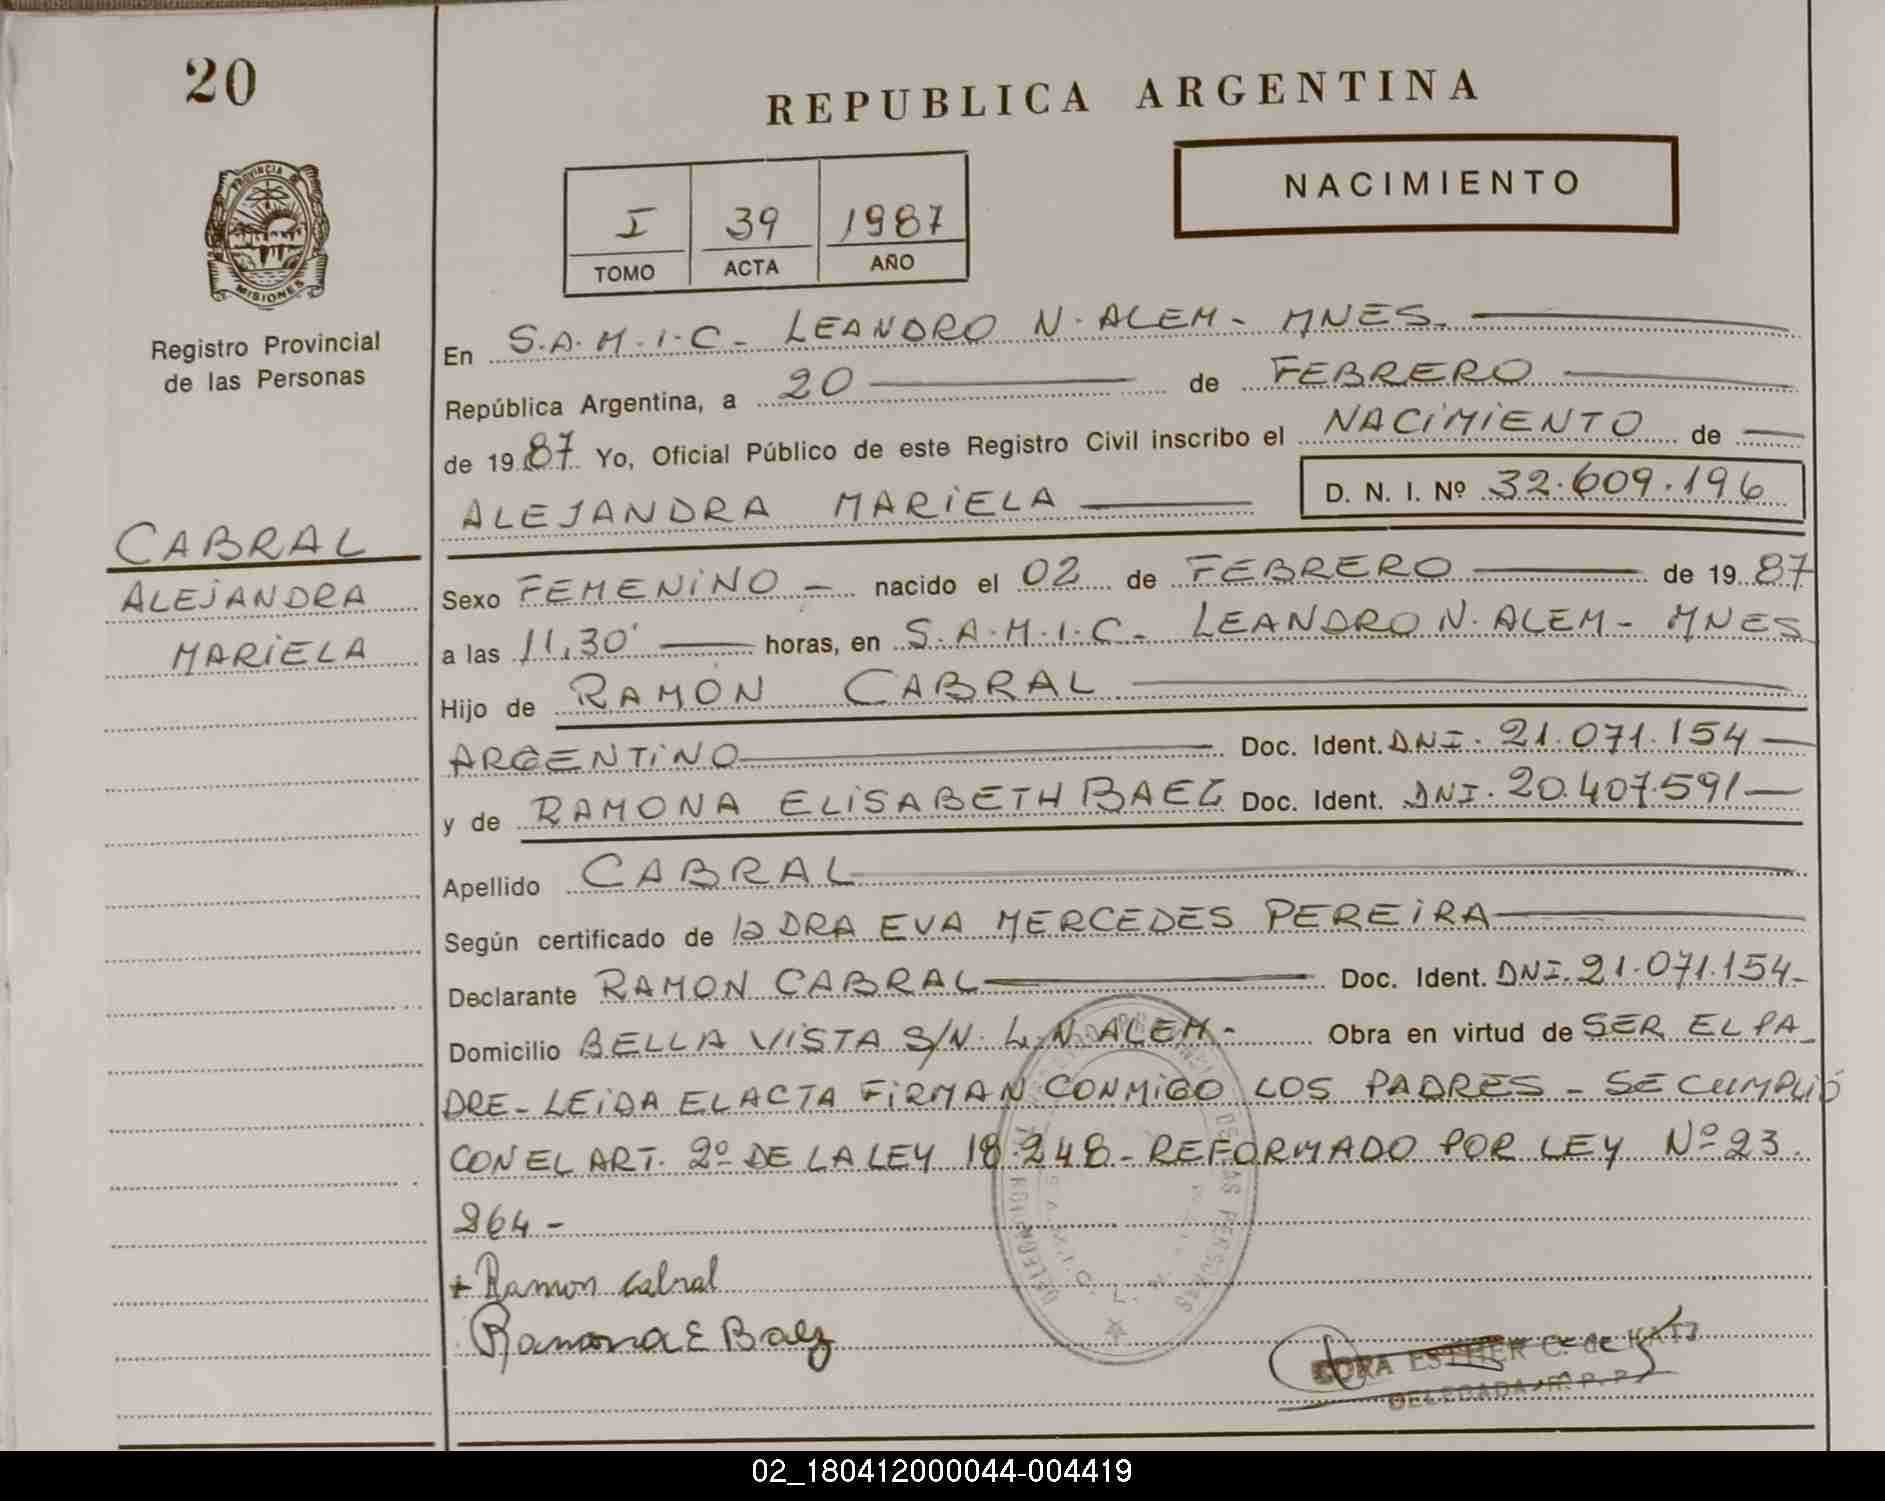 20
REPUBLICA ARGENTINA
NACIMIENTO
I 39 1987
TOMO ACTA AÑO
PROVINCIA DE
MISIONES
Registro Provincial
de las Personas
CABRAL
ALEJANDRA
MARIELA
En S.A.M.I.C - LEANDRO N. ALEM - MNES.
República Argentina, a 20 de FEBRERO
de 1987 Yo, Oficial Público de este Registro Civil inscribo el NACIMIENTO de
ALEJANDRA MARIELA D. N. I. Nº 32.609.196
Sexo FEMENINO - nacido el 02 de FEBRERO de 1987
a las 11,30' horas, en S.A.M.I.C - LEANDRO N. ALEM - MNES
Hijo de RAMÓN CABRAL
ARGENTINO Doc. Ident. DNI. 21.071.154
y de RAMONA ELISABETH BAEZ Doc. Ident. DNI. 20.407.591
Apellido CABRAL
Según certificado de la DRA EVA MERCEDES PEREIRA
Declarante RAMON CABRAL Doc. Ident. DNI. 21.071.154-
Domicilio BELLA VISTA S/N. L.N. ALEM - Obra en virtud de SER EL PA
DRE - LEIDA EL ACTA FIRMAN CONMIGO LOS PADRES - SE CUMPLIÓ
CON EL ART. 2º DE LA LEY 18.248 - REFORMADO POR LEY Nº 23.
264 -
+ Ramon Cabral
Ramona E Baez
DELEGACION
DE LAS PERSONAS
S.A.M.I.C. L. N.
DORA ESTHER C. de KATZ
DELEGADA R. P. P.
02_180412000044-004419